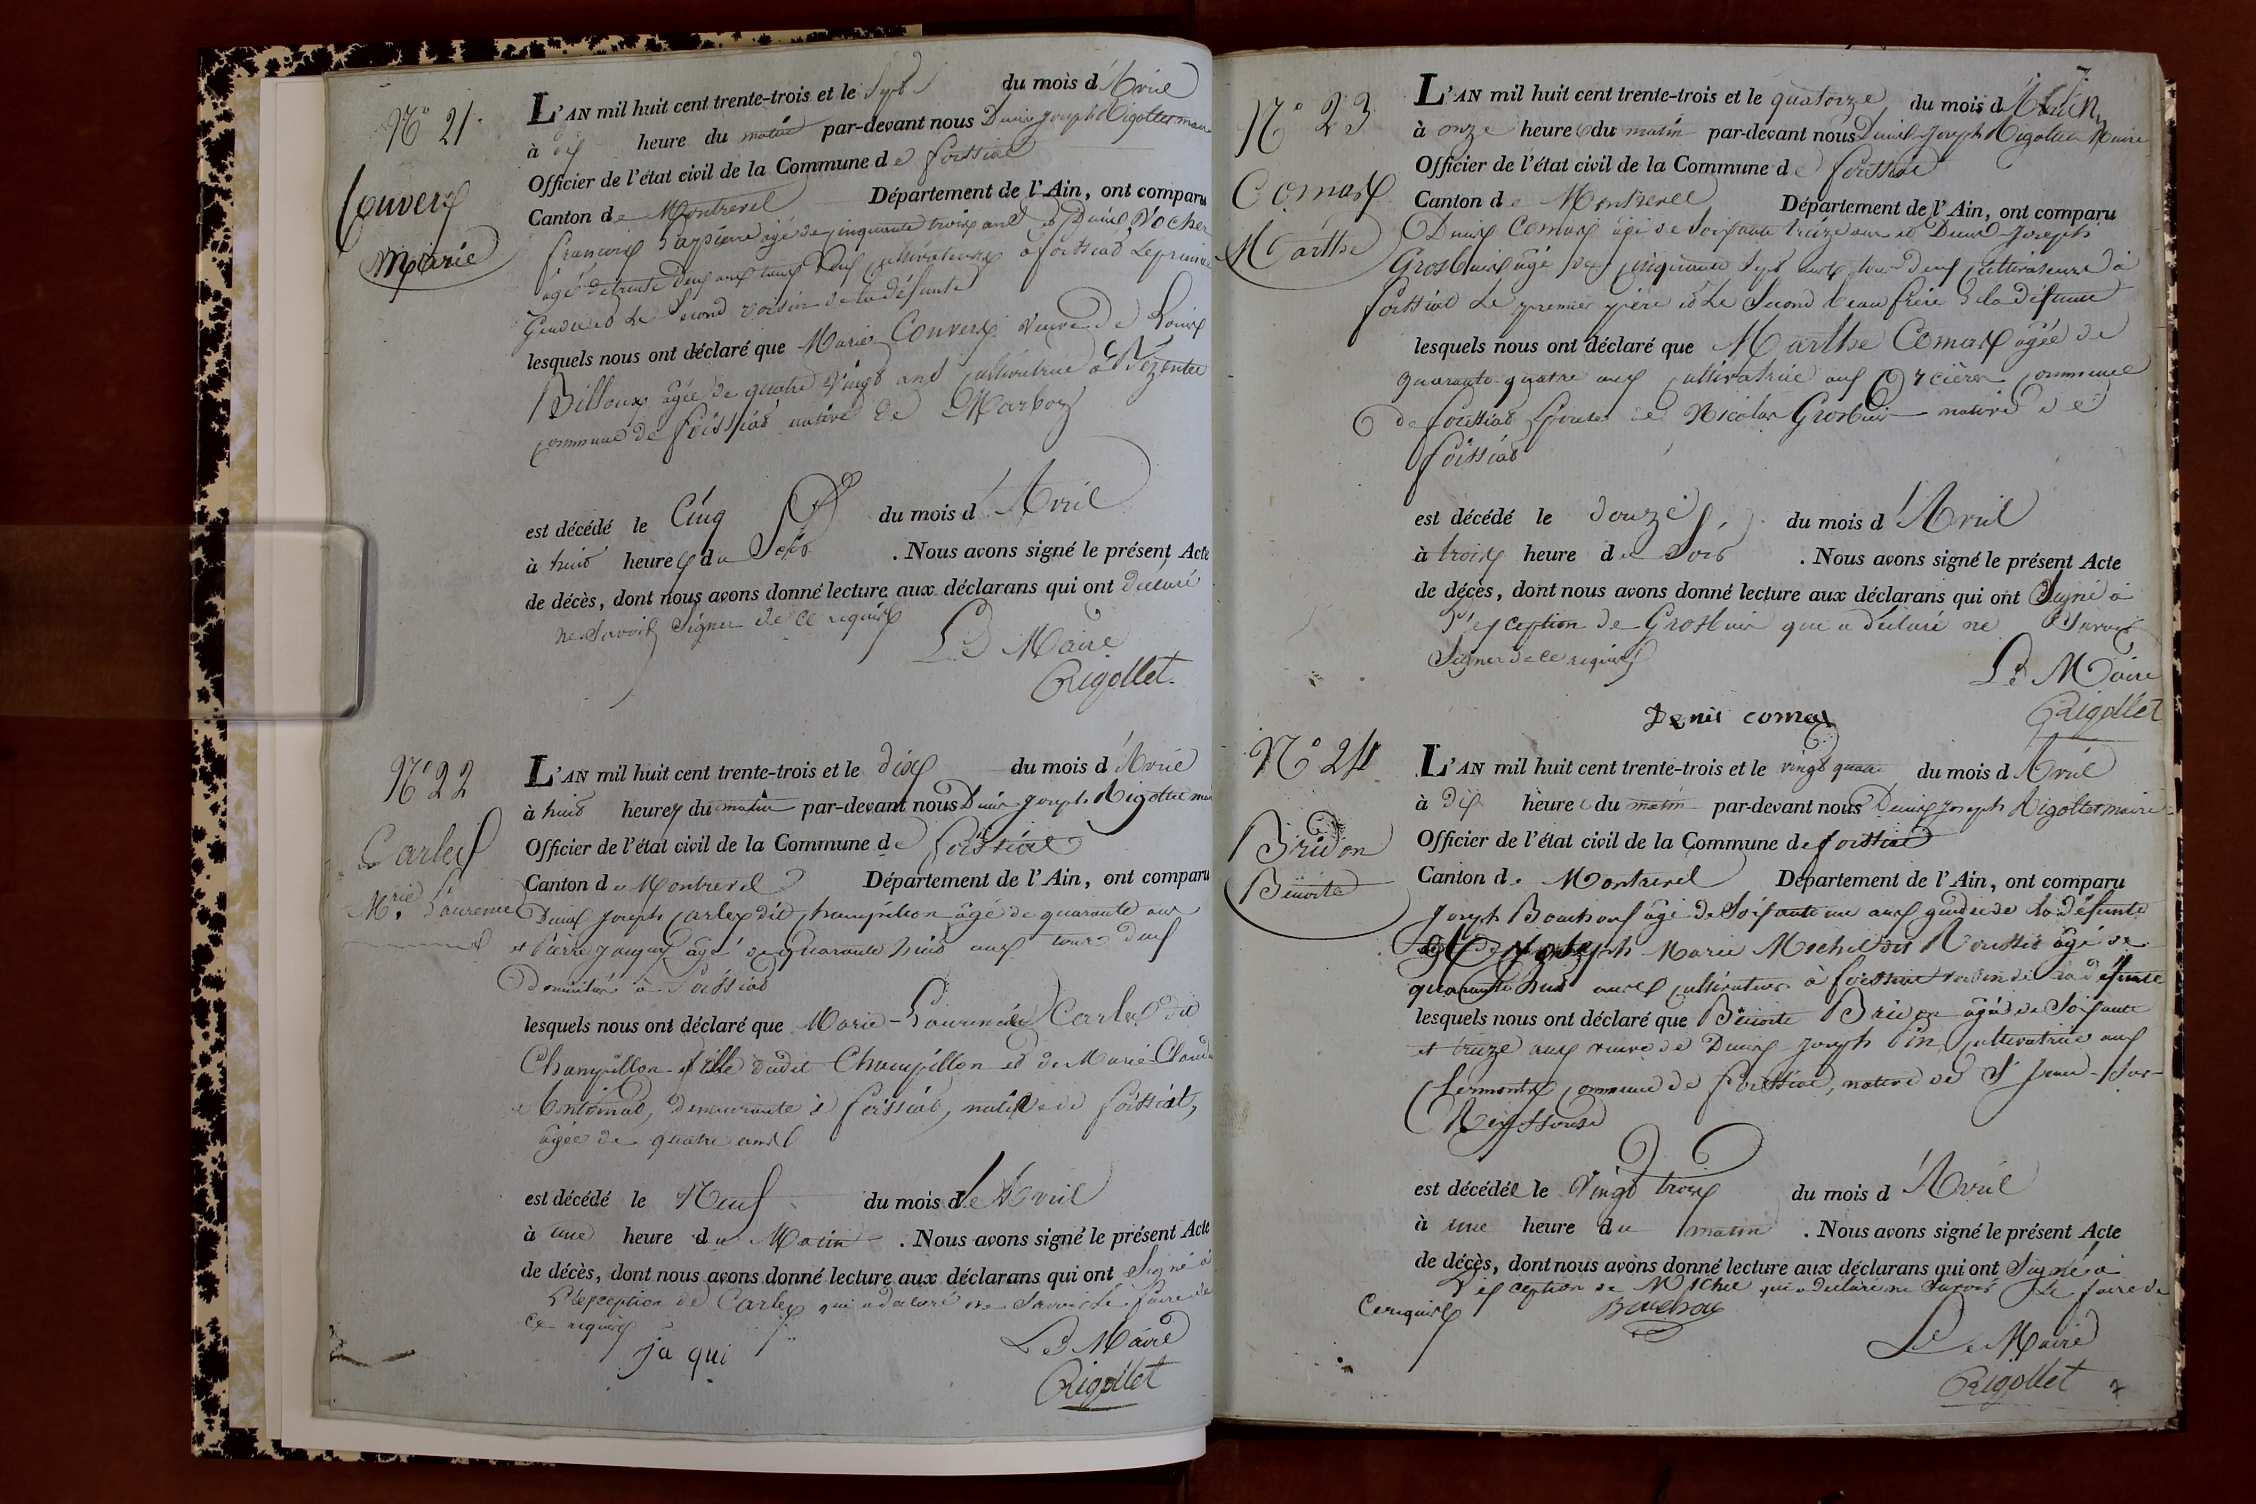 N° 21.
Convert
Marie
L'AN mil huit cent trente-trois et le Sept du mois d'Avril
à dix heure du matin par-devant nous Denis Joseph Rigollet maire
Officier de l'état civil de la Commune de foissiat
Canton de Montrevel Département de l'Ain, ont comparu
françois âgé de cinquante trois ans et Denis Vocher
âgé de trente deux ans tous deux cultivateurs à foissiat Le premier
Gendre et Le Second voisin de la défunte
lesquels nous ont déclaré que Marie Convert veuve de Louis
Billoux âgée de quatre vingt ans cultivatrice à
commune de foissiat native de Marboz
est décédé le Cinq du mois d'Avril
à huit heures du Soir . Nous avons signé le présent Acte
de décès, dont nous avons donné lecture aux déclarans qui ont déclaré
ne Savoir Signer de ce requis
Le Maire
Rigollet
N° 22
Carlet
Mrie Laurence
L'AN mil huit cent trente-trois et le dix du mois d'Avril
à huit heures du matin par-devant nous Denis Joseph Rigollet maire
Officier de l'état civil de la Commune de foissiat
Canton de Montrevel Département de l'Ain, ont comparu
Denis Joseph Carlet dit Champillon âgé de quarante ans
et Pierre âgé de quarante huit ans tous deux
Domiciliés à Foissiat
lesquels nous ont déclaré que Marie-Laurence Carlet dit
Champillon fille dudit Champillon et de Marie Claudine
Antoinat, demeurante à foissiat, native de foissiat,
âgée de quatre ans
est décédé le Neuf du mois de Avril
à une heure du Matin . Nous avons signé le présent Acte
de décès, dont nous avons donné lecture aux déclarans qui ont Signé à
l'exception de Carlet qui a déclaré ne Savoir le faire de
ce requis
ja qui
Le Maire
Rigollet
7.
N° 23
Comas
Marthe
L'AN mil huit cent trente-trois et le quatorze du mois d'Avril
à onze heures du matin par-devant nous Denis Joseph Rigollet Maire
Officier de l'état civil de la Commune de foissiat
Canton de Montrevel Département de l'Ain, ont comparu
Denis Comas âgé de Soixante treize ans et Denis Joseph
Grosbuis âgé de cinquante Sept ans tous deux cultivateurs à
foissiat Le premier père et Le Second beau frère de la défunte
lesquels nous ont déclaré que Marthe Comas âgée de
quarante quatre ans cultivatrice aux Orcières commune
de foissiat Epouse de Nicolas Grosbuis native de
foissiat
est décédé le douze du mois d'Avril
à trois heure du Soir . Nous avons signé le présent Acte
de décès, dont nous avons donné lecture aux déclarans qui ont Signé à
l'exception de Grosbuis qui a déclaré ne Savoir
Signer de ce requis
Le Maire
Rigollet
Denis comas
N° 24
Bridon
Benoite
L'AN mil huit cent trente-trois et le vingt quatre du mois d'Avril
à dix heures du matin par-devant nous Denis Joseph Rigollet maire
Officier de l'état civil de la Commune de foissiat
Canton de Montrevel Département de l'Ain, ont comparu
Joseph Bouchoux âgé de Soixante un ans gendre de la défunte
et Joseph Marie Michel dit Roussel âgé de
quarante huit ans cultivateur à foissiat voisin de la défunte
lesquels nous ont déclaré que Benoite Bridon âgée de Soixante
et treize ans veuve de Denis Joseph Pin cultivatrice aux
commune de foissiat, native de St Jean-sur-
Reyssouse
est décédée le Vingt trois du mois d'Avril
à une heure du matin . Nous avons signé le présent Acte
de décès, dont nous avons donné lecture aux déclarans qui ont Signé à
l'exception de Michel qui a déclaré ne Savoir Le faire de
ce requis
Bouchoux
Le Maire
Rigollet
7